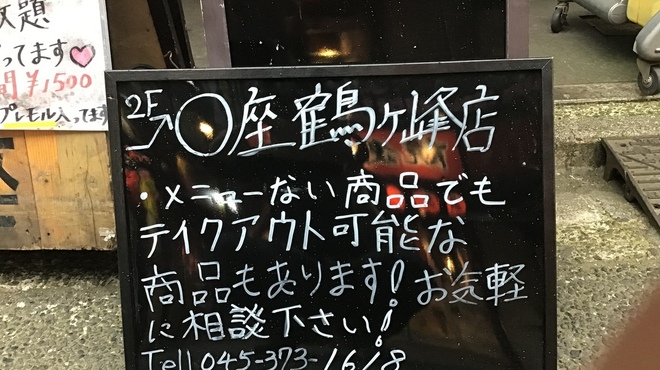 放題
ってます♡
間¥1500
プレモル入ってます
2F→〇座鶴ヶ峰店
・メニューない商品でも
テイクアウト可能な
商品もあります!お気軽
に相談下さい!
Tell 045-373-1618